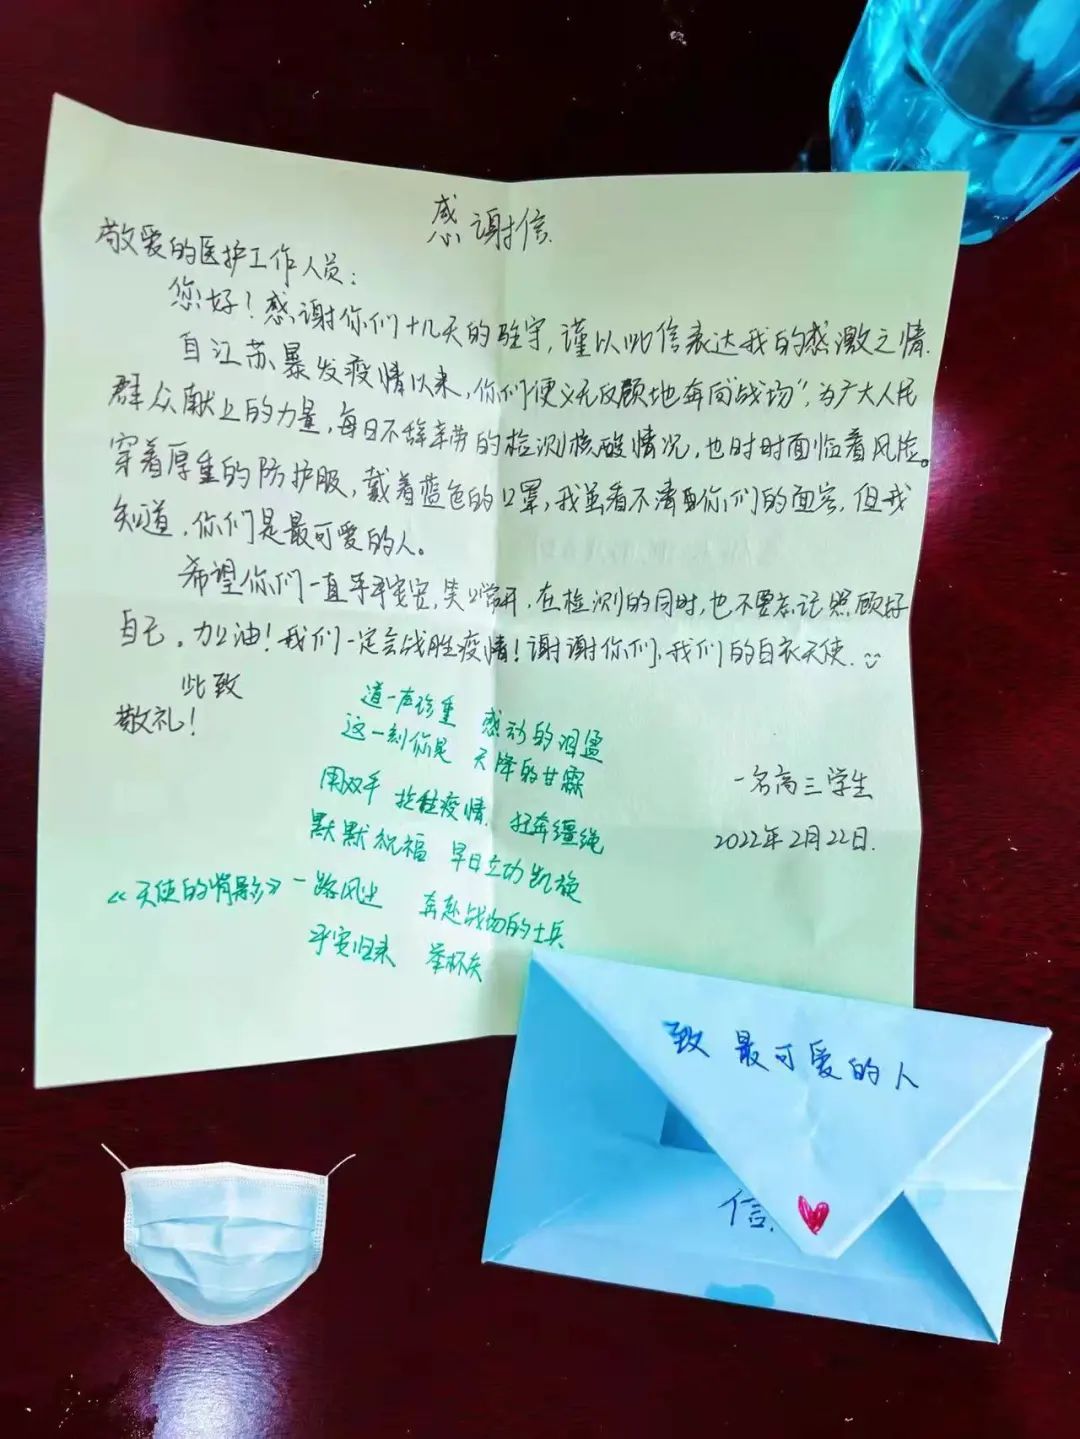 感谢信
敬爱的医护工作人员：
您好！感谢你们十几天的驻守，谨以此信表达我的感激之情.
自江苏暴发疫情以来，你们便义无反顾地奔向“战场”，为广大人民
群众献上的力量，每日不辞辛劳的检测核酸情况，也时时面临着风险。
穿着厚重的防护服，戴着蓝色的口罩，我虽看不清你们的面容，但我
知道，你们是最可爱的人。
希望你们一直平平安安，笑口常开，在检测的同时，也不要忘记照顾好
自己。加油！我们一定会战胜疫情！谢谢你们，我们的白衣天使.
此致
敬礼！
道一声珍重 感动的泪盈
这一刻你是 天降的甘霖
用双手 拴住疫情 狂奔缰绳
默默祝福 早日立功凯旋
《天使的背影》一路风尘 奔赴战场的士兵
平安归来 举杯矣
一名高三学生
2022年2月22日.
致 最可爱的人
信.